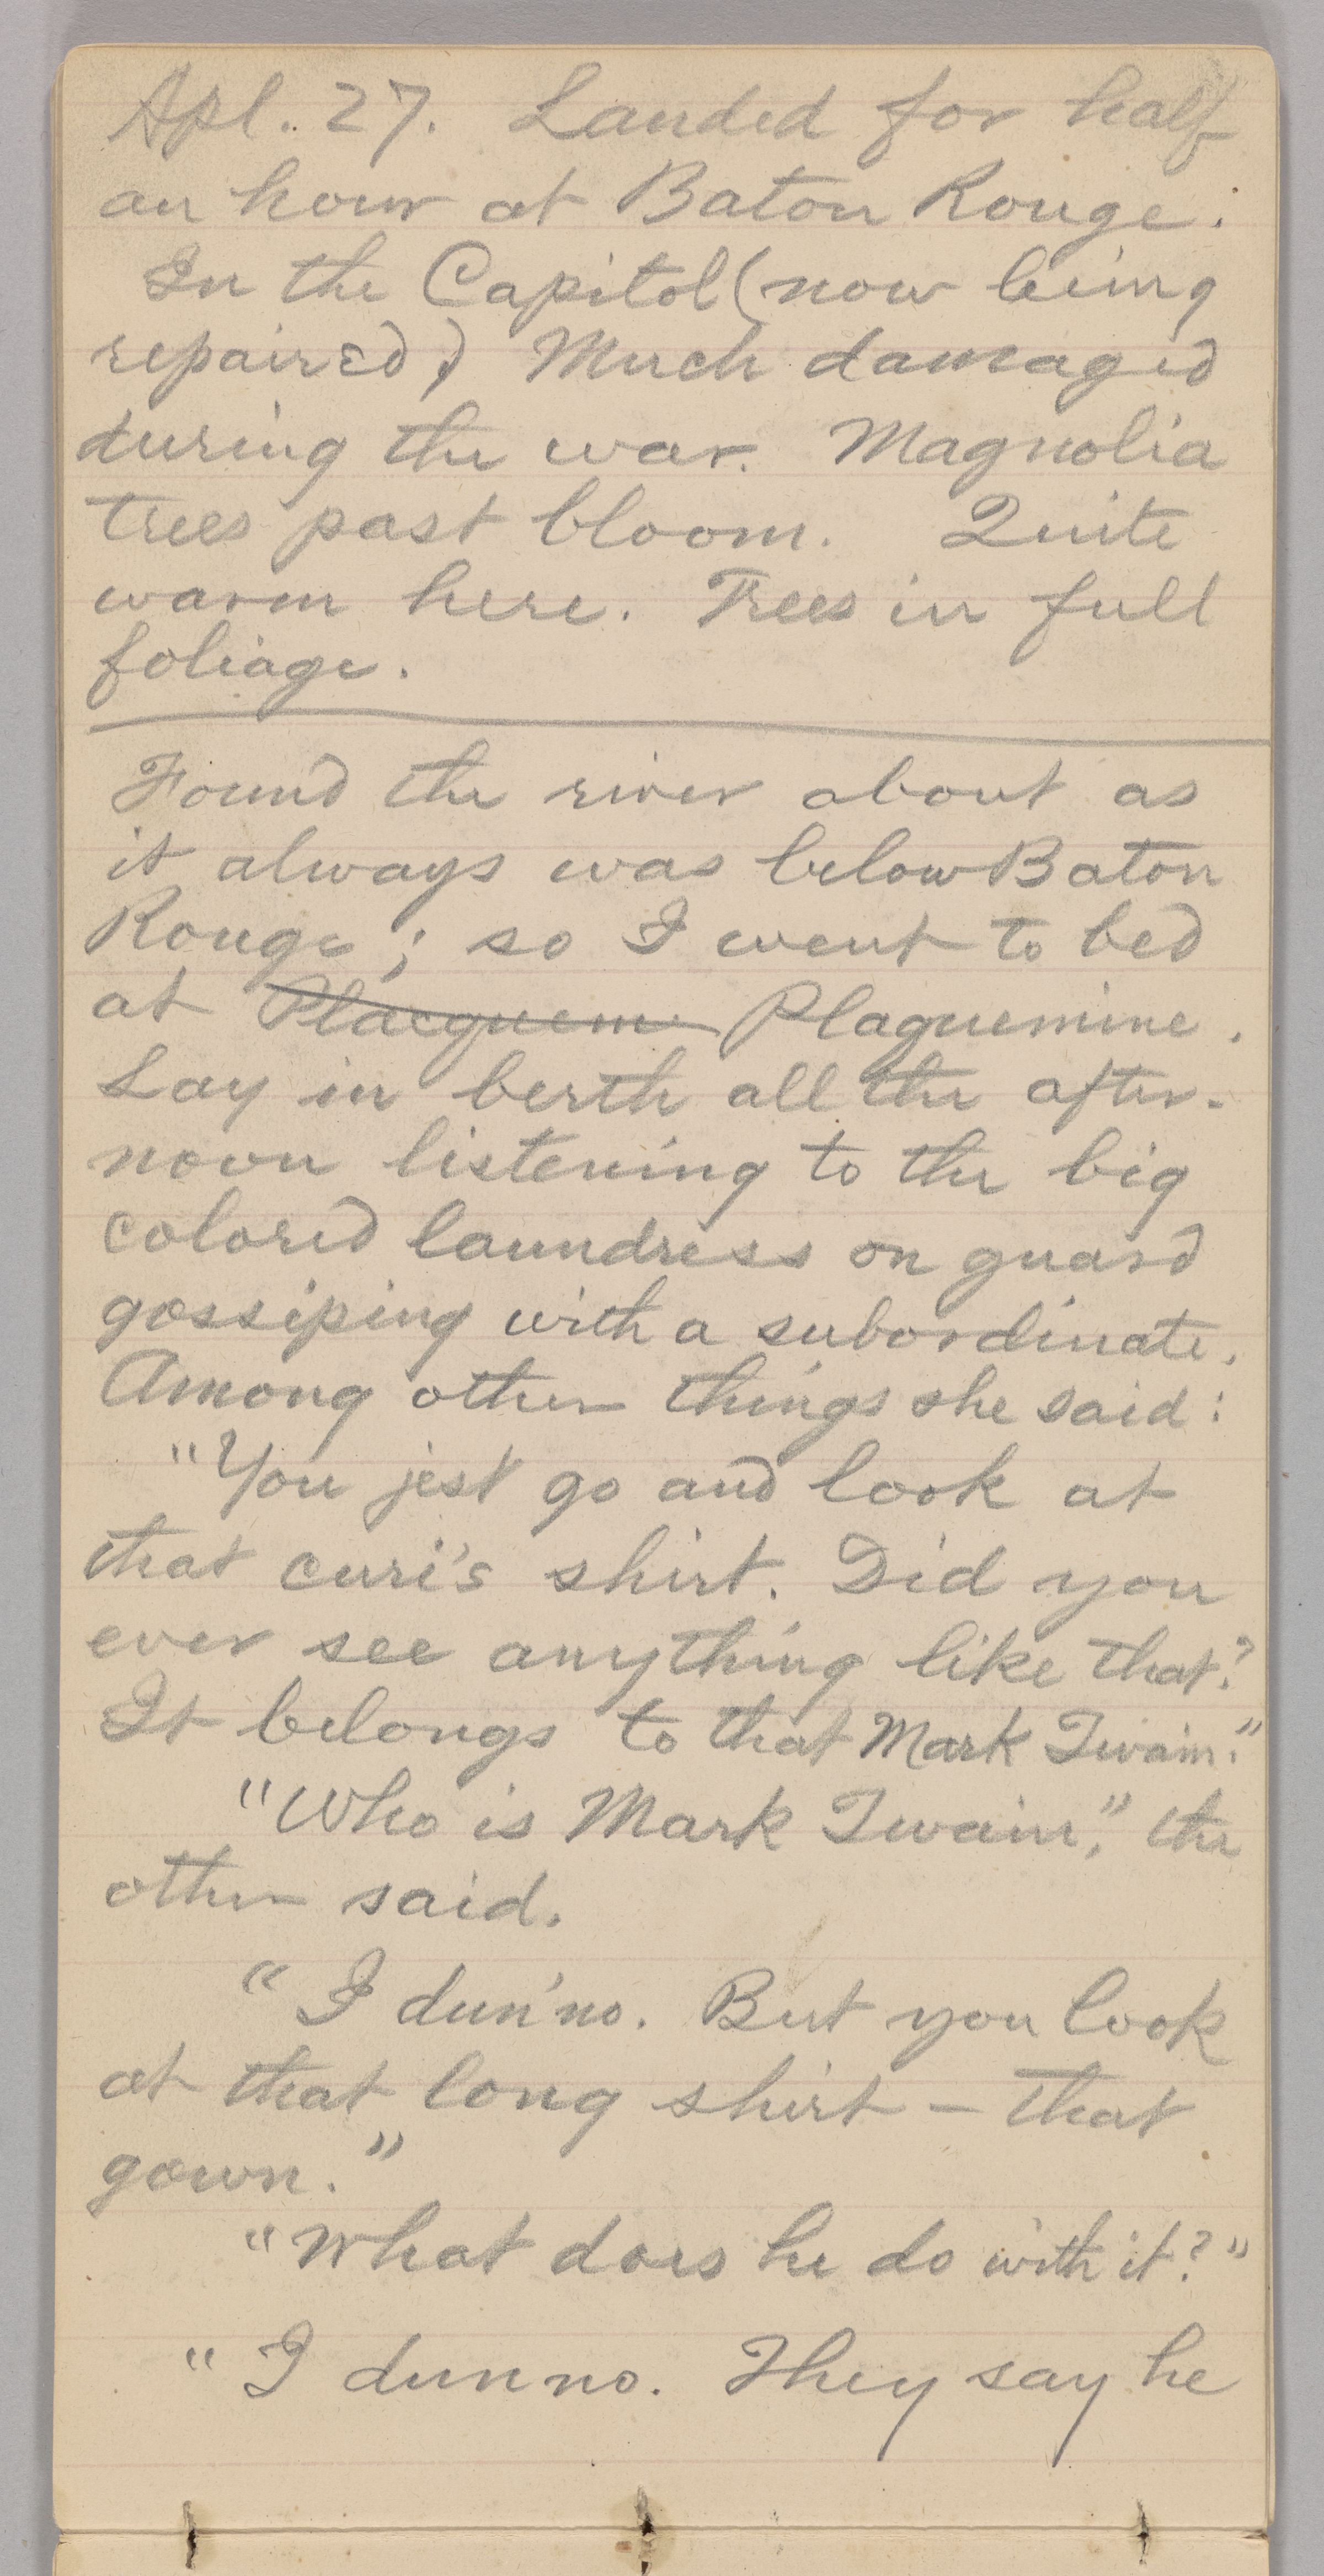 Apl. 27. Landed for half
an hour at Baton Rouge.
In the Capitol (now being
repaired) Much damaged
during the war. Magnolia
trees past bloom. Quite
warm here. Trees in full
foliage.
Found the river about as
it always was below Baton
Rouge; so I went to bed
at Placquem Plaquemine.
Lay in berth all the after-
noon listening to the big
colored laundress on guard
gossiping with a subordinate.
Among other things she said:
"You jest go and look at
that curi's shirt. Did you
ever see anything like that?
It belongs to that Mark Twain."
"Who is Mark Twain," the
other said.
"I dun'no. But you look
at that long shirt – that
gown."
"What does he do with it?"
"I dunno. They say he